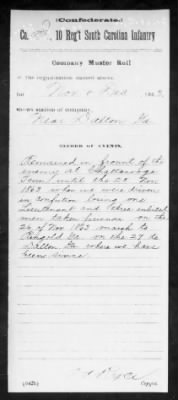 (Confederate)
Co. 10 Reg't South Carolina Infantry
Company Muster Roll
of the organization named above,
for Nov & Dec 186
Station of company,
Near Dalton, Ga
RECORD OF EVENTS.
Remained in front of the
enemy at Chattanooga
Tenn until the 25 Nov
1863 when we were driven
in confution losing one
Lieutenant and three enlisted
men taken prisoner on the
26 of Nov 1863 march to
Ringold Ga on the 27 to
Dalton Ga where we have
been since.
(642b)
Copyist.